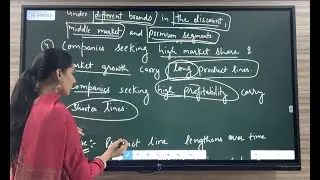 under different brands in the discount,
middle market and premium segments.
Companies seeking high market share &
market growth carry long product lines.
Companies seeking high profitability carry
Shorter lines.
Product line lengthens over time